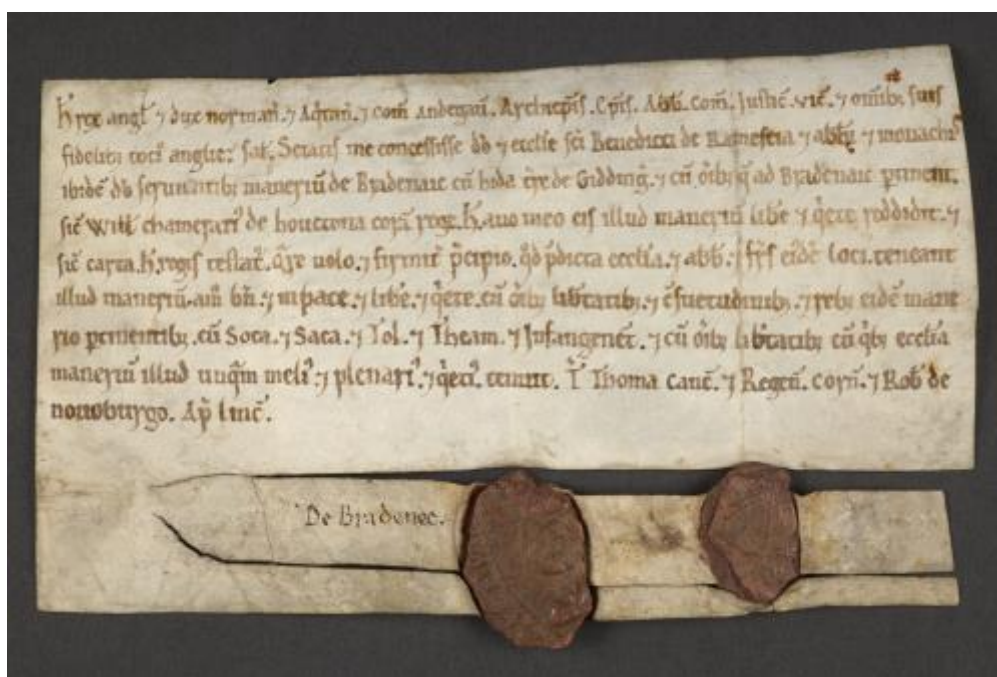 H. rex angł ⁊ dux norman̄. ⁊ Aq̄tan̄. ⁊ com̄ andegaū. Archiep̄is. Ep̄is. Abb̄. Com̄. Justic̄. vic̄. ⁊ om̄ib; suis
fidelib; toci' anglie; sał. Sciatis me concessisse dō ⁊ eccłie sc̄i Benedicti de Rameseia ⁊ abb̄i ⁊ monachis
ibidē dō seruientib; maneriū de Bradenaic cū hida t̄re de Gidding̛. ⁊ cū oīb; q̄ ad Bradenaic ꝑtinent.
sic̄ Wiłł chamerari' de houctona corā rege .H. auo meo eis illud maneriū libē ⁊ q̄ete reddidit. ⁊
sic̄ carta .H. regis testat̛. q̄re uolo. ⁊ firmit̛ p̄cipio. qd̄ p̄dicta eccłia. ⁊ abb̄. ⁊ fr̄s eid̄ē loci. teneant
illud maneriū. bn̄. ⁊ in pace. ⁊ libē. ⁊ q̄ete. cū oīb; lib̄tatib;. ⁊ c̄suetudinib;. ⁊ reb; eidē mane
rio ꝑtinentib;. cū Soca. ⁊ Saca. ⁊ Tol. ⁊ Theam. ⁊ Infangenet̛. ⁊ cū oīb; lib̄tatib; cū qib; eccłia
maneriū illud unq̄m meli'. ⁊ plenari'. ⁊ q̄eci'. tenuit. T̄ Thoma canc̄. ⁊ Regin̄. corn̄. ⁊ Rob̄ de
nouoburgo. Ap̄ linc̄.
De Bradenec.